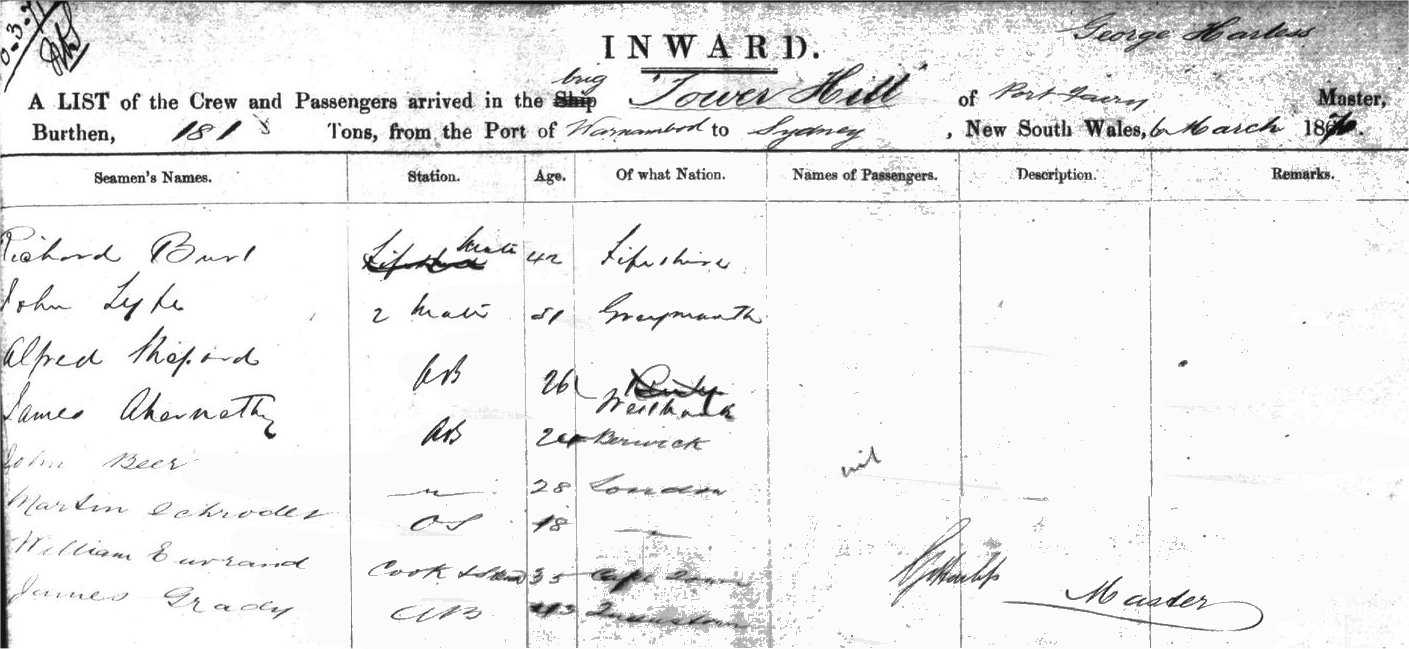 George Harless
INWARD.
brig
A LIST of the Crew and Passengers arrived in the Ship "Tower Hill" of Port Fairy Master,
Burthen, 181 Tons, from the Port of Warnambool to Sydney, New South Wales, 6 March 187
Seamen's Names. Station. Age. Of what Nation. Names of Passengers. Description. Remarks.
Richard Burt Mate 42 Fifeshire
John Lyke 2 Mate 51 Greymouth
Alfred Shepard AB 26
James Abernathy AB 24 Berwick
John Beer " 28 London nil
Martin Schroder OS 18 —
William Currand Cook & Stew 35 Cape Town
James Grady AB 43 Queenstown
Master